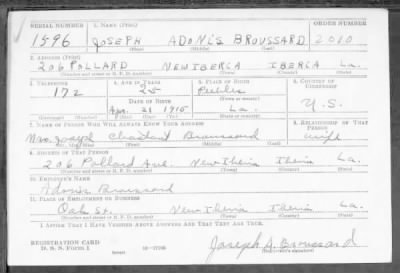 SERIAL NUMBER 1. NAME (Print) ORDER NUMBER
1596 JOSEPH ADONIS BROUSSARD 2010
(First) (Middle) (Last)
2. ADDRESS (Print)
206 POLLARD NEW IBERIA IBERIA La.
(Number and street or R. F. D. number) (Town) (County) (State)
3. TELEPHONE 4. AGE IN YEARS 5. PLACE OF BIRTH 6. COUNTRY OF CITIZENSHIP
172 25 Peebles
DATE OF BIRTH (Town or county)
Apr. 21 1915 La. U.S.
(Exchange) (Number) (Mo.) (Day) (Yr.) (State or country)
7. NAME OF PERSON WHO WILL ALWAYS KNOW YOUR ADDRESS 8. RELATIONSHIP OF THAT PERSON
Mrs. Joseph Broussard wife
(Mr., Mrs., Miss) (First) (Middle) (Last)
9. ADDRESS OF THAT PERSON
206 Pollard Ave. New Iberia Iberia La.
(Number and street or R. F. D. number) (Town) (County) (State)
10. EMPLOYER'S NAME
Adonis Broussard
11. PLACE OF EMPLOYMENT OR BUSINESS
Oak St. New Iberia Iberia La.
(Number and street or R. F. D. number) (Town) (County) (State)
I AFFIRM THAT I HAVE VERIFIED ABOVE ANSWERS AND THAT THEY ARE TRUE.
REGISTRATION CARD
D. S. S. Form 1 16—17105
Joseph A. Broussard
(Registrant's signature)